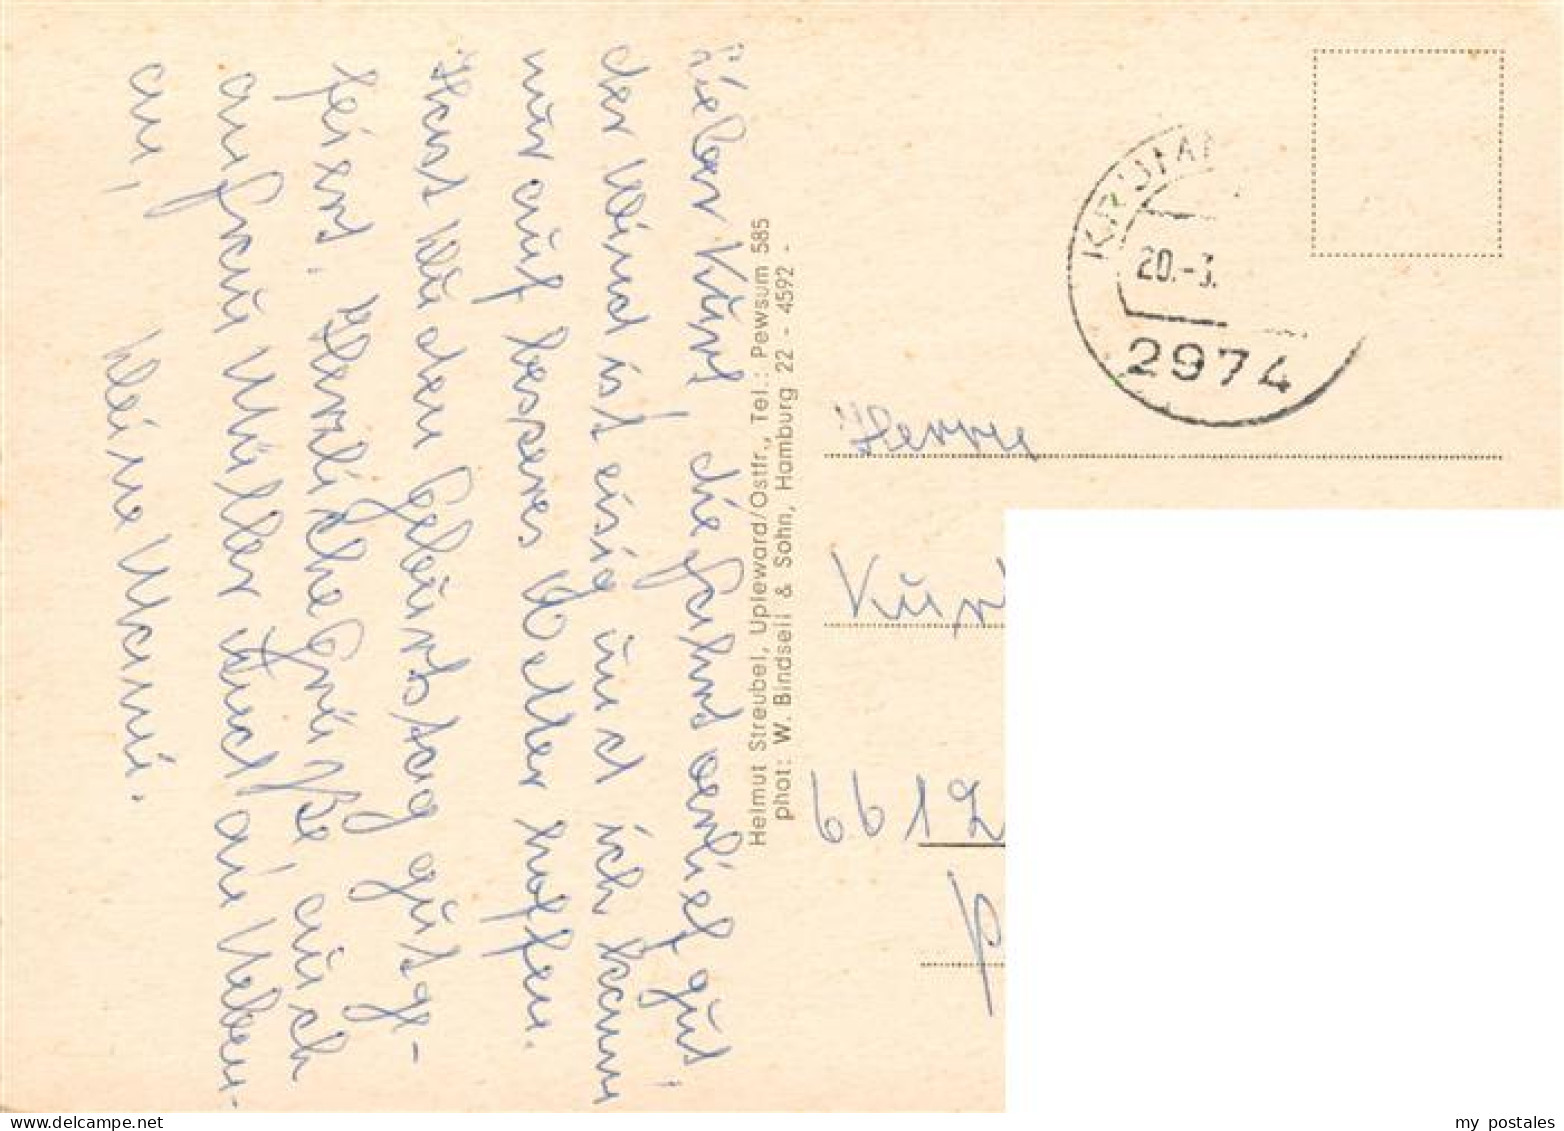 Lieber Kurt, die Fahrt verlief gut,
der Wind ist eisig und ich kann
nur auf besseres Wetter hoffen.
Hast Du den Geburtstag gut ge-
feiert. Herzliche Grüße, auch
an Frau Müller und an Neben-
an,
Deine Mami.
Helmut Streubel, Upleward/Ostfr., Tel.: Pewsum 585
phot: W. Bindseil & Sohn, Hamburg 22 - 4592 -
20.-3.
2974
Herrn
Kurt
6612
my postales